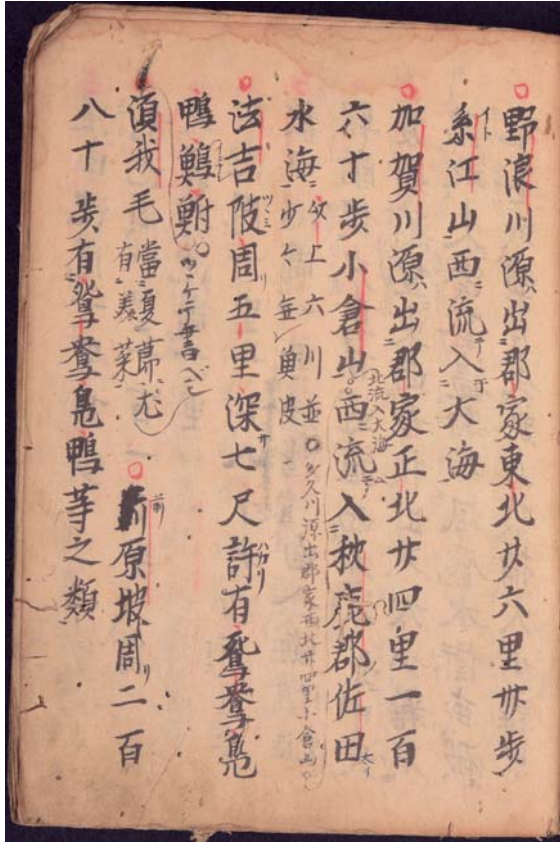 野浪川源出郡家東北廿六里卅歩
糸江山西流入大海
加賀川源出郡家正北廿四里一百
六十歩小倉山西流入秋鹿郡佐田
北流入大海
水海
以上六川並
少々無魚皮
多久川源出郡家西北廿四里小倉山
法吉陂周五里深七尺許有鴛鴦鳧
鴨鯉鮒
須我毛
當夏節尤
有美菜
前原坡周二百
八十歩有鴛鴦鳧鴨等之類